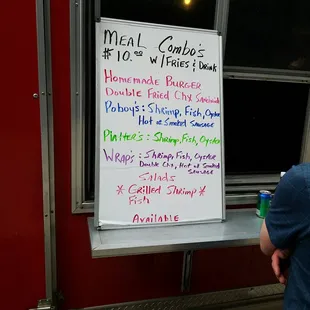 MEAL Combo's
$10.00 w/Fries & Drink
Homemade Burger
Double Fried Chx Sandwich
Poboy's: Shrimp, Fish, Oyster
Hot or Smoked Sausage
Platter's: Shrimp, Fish, Oyster
Wrap's: Shrimp, Fish, Oyster
Double Chx, Hot or Smoked
Sausage
Salads
* Grilled Shrimp *
Fish
Available